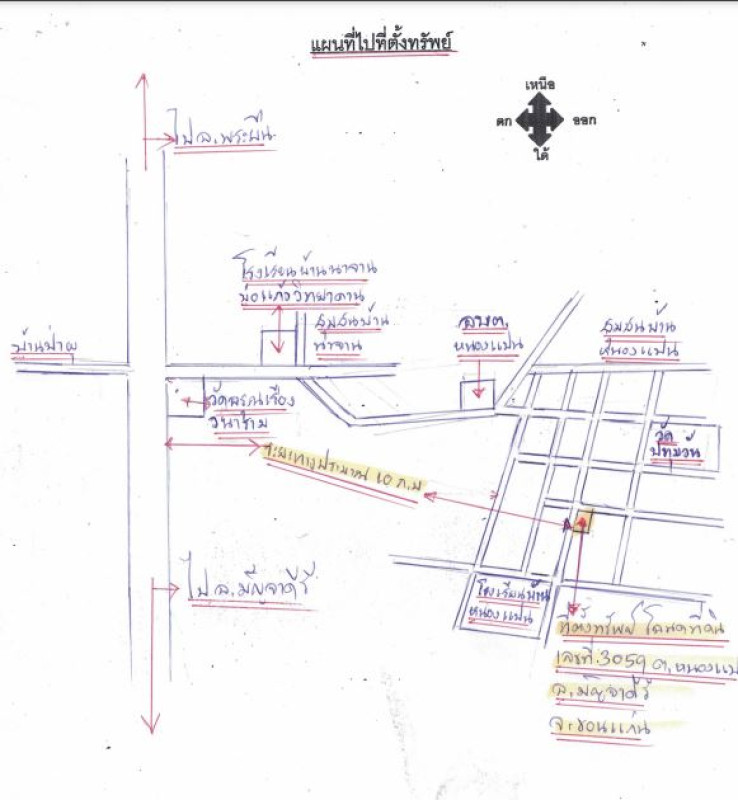 แผนที่ไปที่ตั้งทรัพย์
เหนือ
ตก
ออก
ใต้
ไป อ.พระยืน
โรงเรียนบ้านนาจาน
บ่อแก้ววิทยาคาน
ชุมชนบ้าน
นาจาน
อบต.
หนองแปน
ชุมชนบ้าน
หนองแปน
บ้านป่าม
วัดอรุณเรือง
วนาราม
วัด
ปทุมวัน
ระยะทางประมาณ 10 ก.ม
ไป อ.มัญจาคีรี
โรงเรียนบ้าน
หนองแปน
ที่ตั้งทรัพย์ โฉนดที่ดิน
เลขที่.3059 ต.หนองแป
อ.มัญจาคีรี
จ.ขอนแก่น